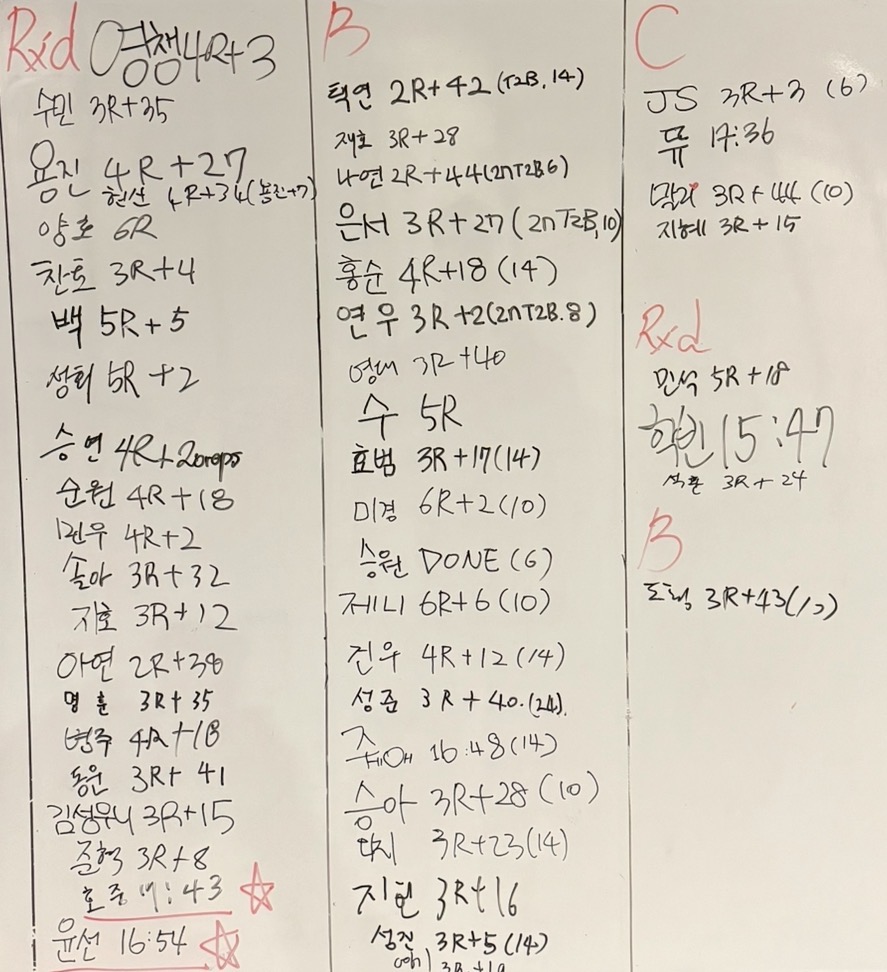 Rxd 영챙 4R+3
수민 3R+35
용진 4R+27
현산 4R+34(용진+7)
양호 6R
찬호 3R+4
백 5R+5
성희 5R+2
승연 4R+20reps
순원 4R+18
민우 4R+2
솔아 3R+32
지호 3R+12
아연 2R+38
명훈 3R+35
범주 4R+18
동운 3R+41
김성우니 3R+15
준혁 3R+8
호중
윤선 16:54
B
택연 2R+42 (T2B, 14)
재호 3R+28
나연 2R+44(2nT2B6)
은서 3R+27(2nT2B,10)
홍순 4R+18(14)
연우 3R+2(2nT2B.8)
영대 3R+40
수 5R
효범 3R+17(14)
미경 6R+2(10)
승원 DONE(6)
제니 6R+6(10)
진우 4R+12(14)
성준 3R+40.(24).
16:48(14)
승아 3R+28(10)
3R+23(14)
지현 3R+16
성진 3R+5(14)
C
JS 3R+3 (6)
뮤 17:36
3R+44(10)
지혜 3R+15
Rxd
민석 5R+18
학빈 15:47
석환 3R+24
B
3R+43